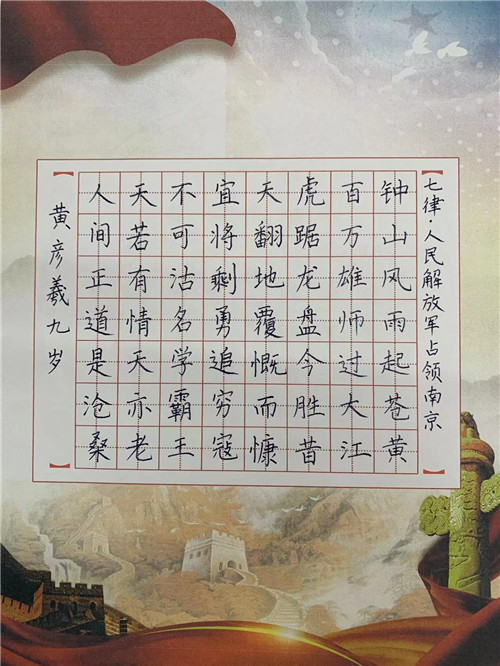 七律·人民解放军占领南京
钟山风雨起苍黄
百万雄师过大江
虎踞龙盘今胜昔
天翻地覆慨而慷
宜将剩勇追穷寇
不可沽名学霸王
天若有情天亦老
人间正道是沧桑
黄彦羲九岁